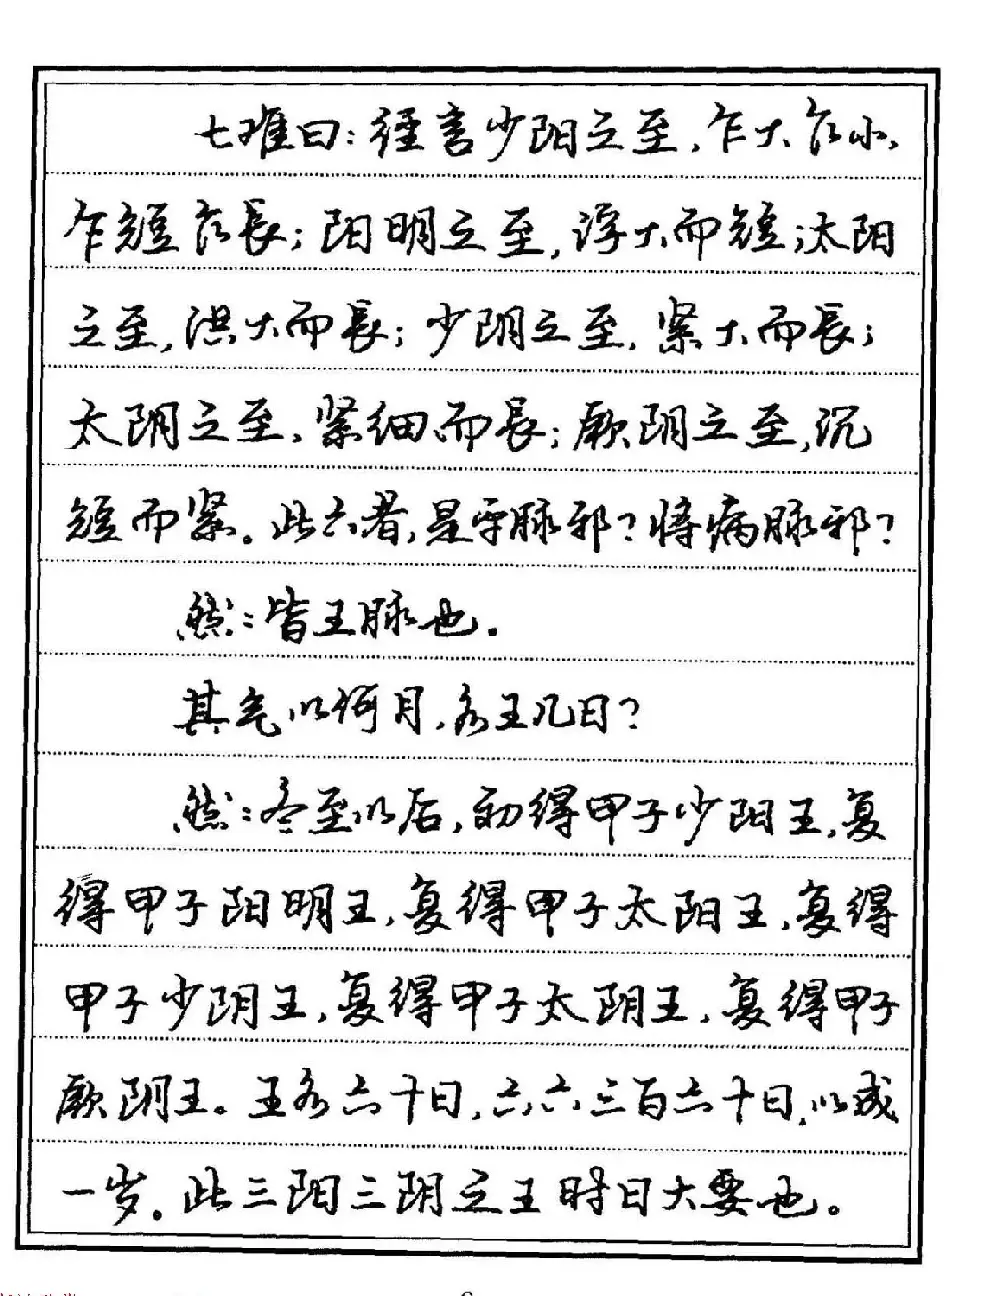 七难曰：经言少阳之至，乍大乍小，
乍短乍長；阳明之至，浮大而短；太阳
之至，洪大而長；少阴之至，紧大而長；
太阴之至，紧细而長；厥阴之至，沉
短而紧。此六者，是平脉邪？将病脉邪？
然：皆王脉也。
其气以何月，各王几日？
然：冬至以后，初得甲子少阳王，复
得甲子阳明王，复得甲子太阳王，复得
甲子少阴王，复得甲子太阴王，复得甲子
厥阴王。王各六十日，六六三百六十日，以成
一岁。此三阳三阴之王时日大要也。